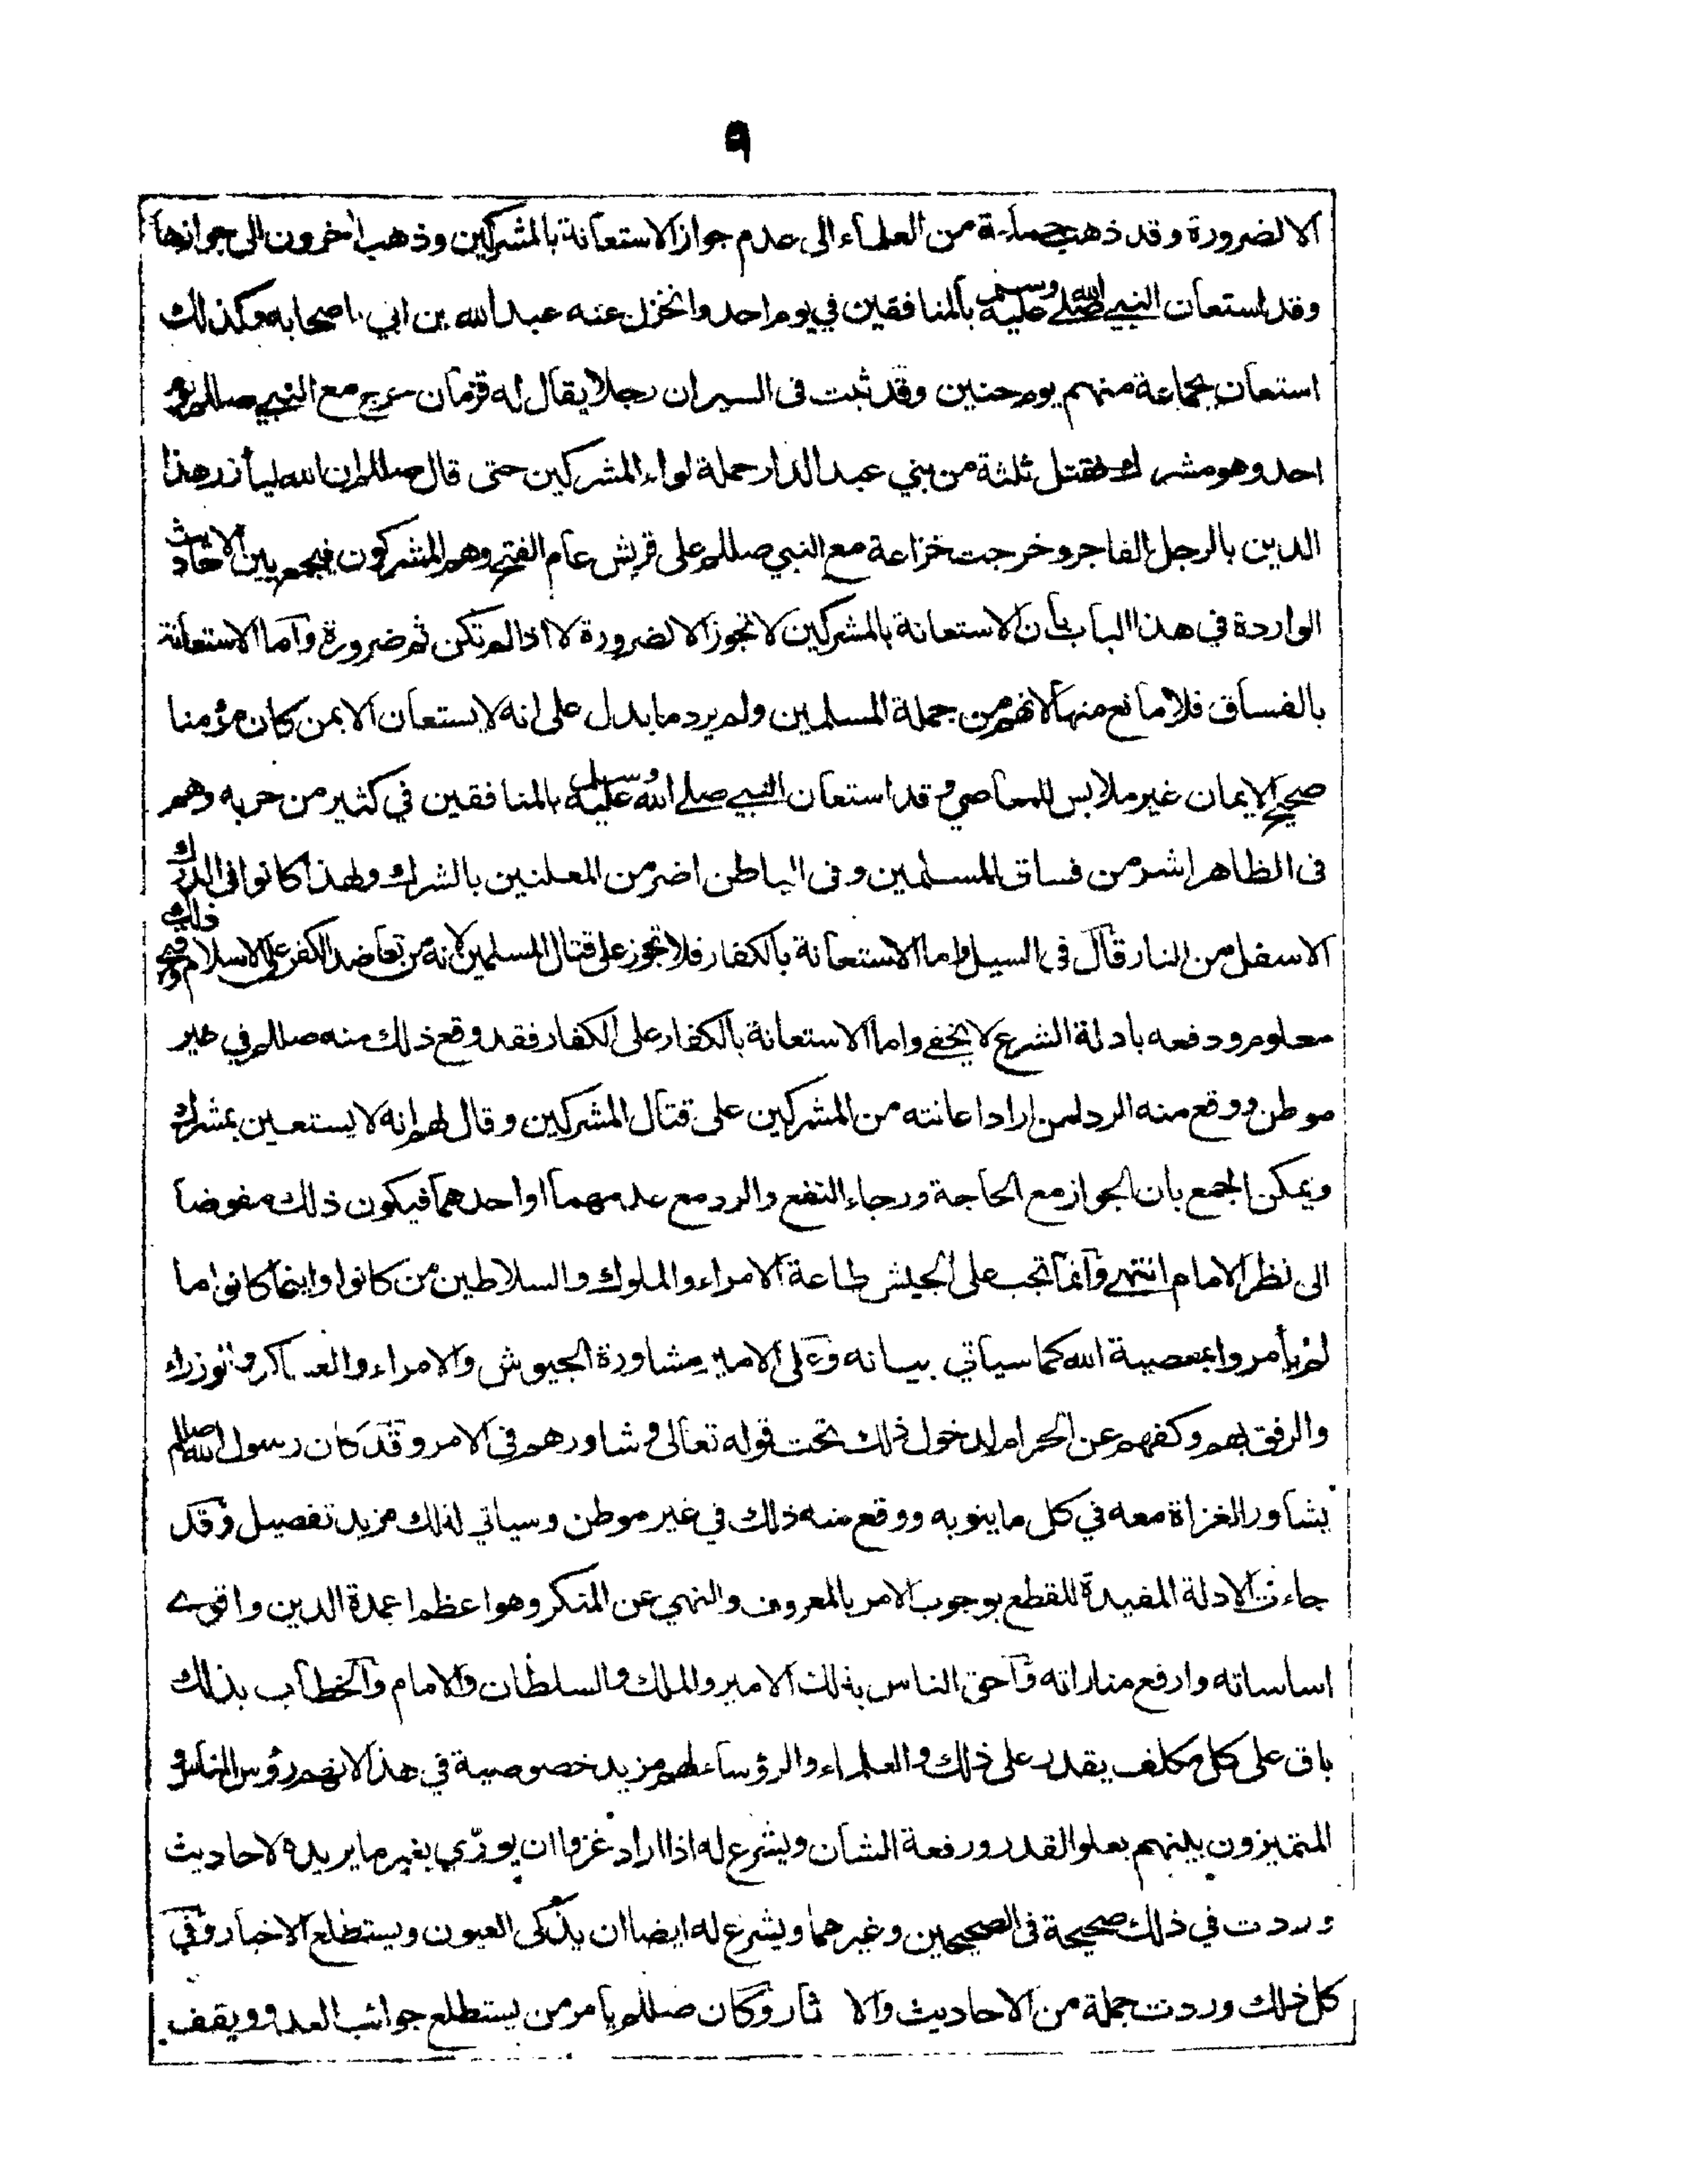 ٩
الا لضرورة وقد ذهب جماعة من العلماء الى عدم جواز الاستعانة بالمشركين وذهب اخرون الى جوازها
وقد استعان النبي صلى الله عليه وسلم بالمنافقين في يوم احد وانخزل عنه عبد الله بن ابي باصحابه وكذلك
استعان بجماعة منهم يوم حنين وقد ثبت فى السير ان رجلا يقال له قزمان خرج مع النبي صللم يوم
احد وهو مشرك فقتل ثلثة من بني عبد الدار حملة لواء المشركين حتى قال صللم ان الله ليأزر هذا
الدين بالرجل الفاجر وخرجت خزاعة مع النبي صللم على قريش عام الفتح وهم المشركون فيجمع بين الاحاديث
الواردة في هذا الباب بان الاستعانة بالمشركين لا تجوز الا لضرورة لا اذا لم تكن ثم ضرورة واما الاستعانة
بالفساق فلا مانع منها لانهم من جملة المسلمين ولم يرد ما يدل على انه لا يستعان الا بمن كان مؤمنا
صحيح الايمان غير ملابس للمعاصي وقد استعان النبي صلى الله عليه وسلم بالمنافقين في كثير من حربه وهم
فى الظاهر اشر من فساق المسلمين وفى الباطن اضر من المعلنين بالشرك ولهذا كانوا فى الدرك
الاسفل من النار قال في السيل واما الاستعانة بالكفار فلا تجوز على قتال المسلمين لانه من تعاضد الكفر على الاسلام وقبح ذلك
معلوم ودفعه بادلة الشرع لا يخفى واما الاستعانة بالكفار على الكفار فقد وقع ذلك منه صللم في غير
موطن ووقع منه الرد لمن اراد اعانته من المشركين على قتال المشركين وقال لهم انه لا يستعين بمشرك
ويمكن الجمع بان الجواز مع الحاجة ورجاء النفع والرد مع عدمهما او احدهما فيكون ذلك مفوضا
الى نظر الامام انتهى وانما تجب على الجيش طاعة الامراء والملوك والسلاطين من كانوا واينما كانوا ما
لم يأمروا بمعصية الله كما سياتي بيانه وعلى الامير مشاورة الجيوش والامراء والعساكر والوزراء
والرفق بهم وكفهم عن الحرام لدخول ذلك تحت قوله تعالى وشاورهم في الامر وقد كان رسول الله صللم
يشاور الغزاة معه في كل ما ينوبه ووقع منه ذلك في غير موطن وسياتي لذلك مزيد تفصيل وقد
جاءت الادلة المفيدة للقطع بوجوب الامر بالمعروف والنهي عن المنكر وهو اعظم اعمدة الدين واقوى
اساساته وارفع مناراته واحق الناس بذلك الامير والملك والسلطان والامام والخطاب بذلك
باق على كل مكلف يقدر على ذلك والعلماء والرؤساء لهم مزيد خصوصية في هذا لانهم رؤس الناس و
المتميزون بينهم بعلو القدر ورفعة الشان ويشرع له اذا اراد غزوا ان يورّي بغير ما يريده لاحاديث
وردت في ذلك صحيحة فى الصحيحين وغيرهما ويشرع له ايضا ان يذكى العيون ويستطلع الاخبار وفي
كل ذلك وردت جملة من الاحاديث والاثار وكان صللم يأمر من يستطلع جوائب العدو ويقف